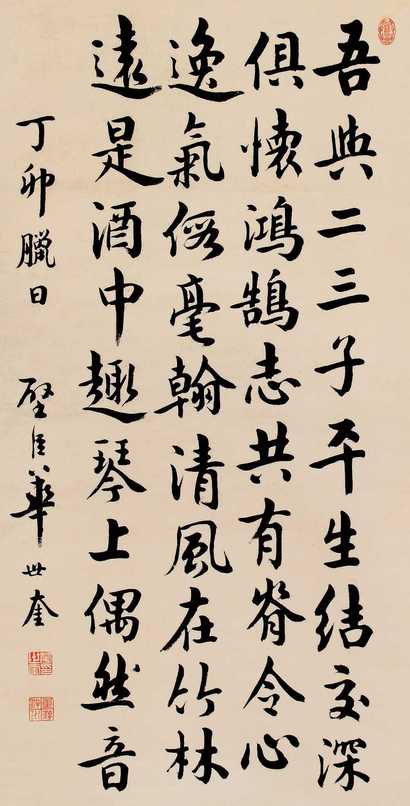 吾與二三子平生結交深
俱懷鴻鵠志共有脊令心
逸氣假毫翰清風在竹林
遠是酒中趣琴上偶然音
丁卯臘日 璧臣華世奎